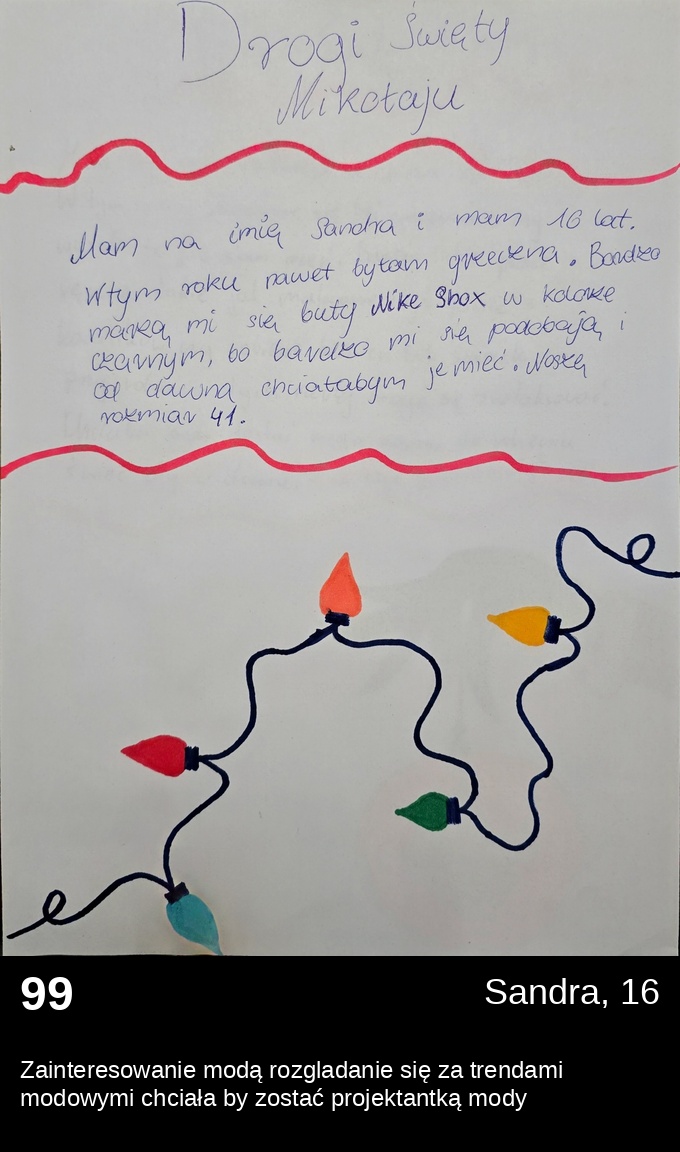 Drogi Święty
Mikołaju
Mam na imię Sandra i mam 16 lat.
Wtym roku nawet byłam grzeczna. Bardzo
marzą mi się buty Nike Shox w kolorze
czarnym, bo bardzo mi się podobają i
od dawna chciałabym je mieć. Noszę
rozmiar 41.
99
Sandra, 16
Zainteresowanie modą rozgladanie się za trendami
modowymi chciała by zostać projektantką mody